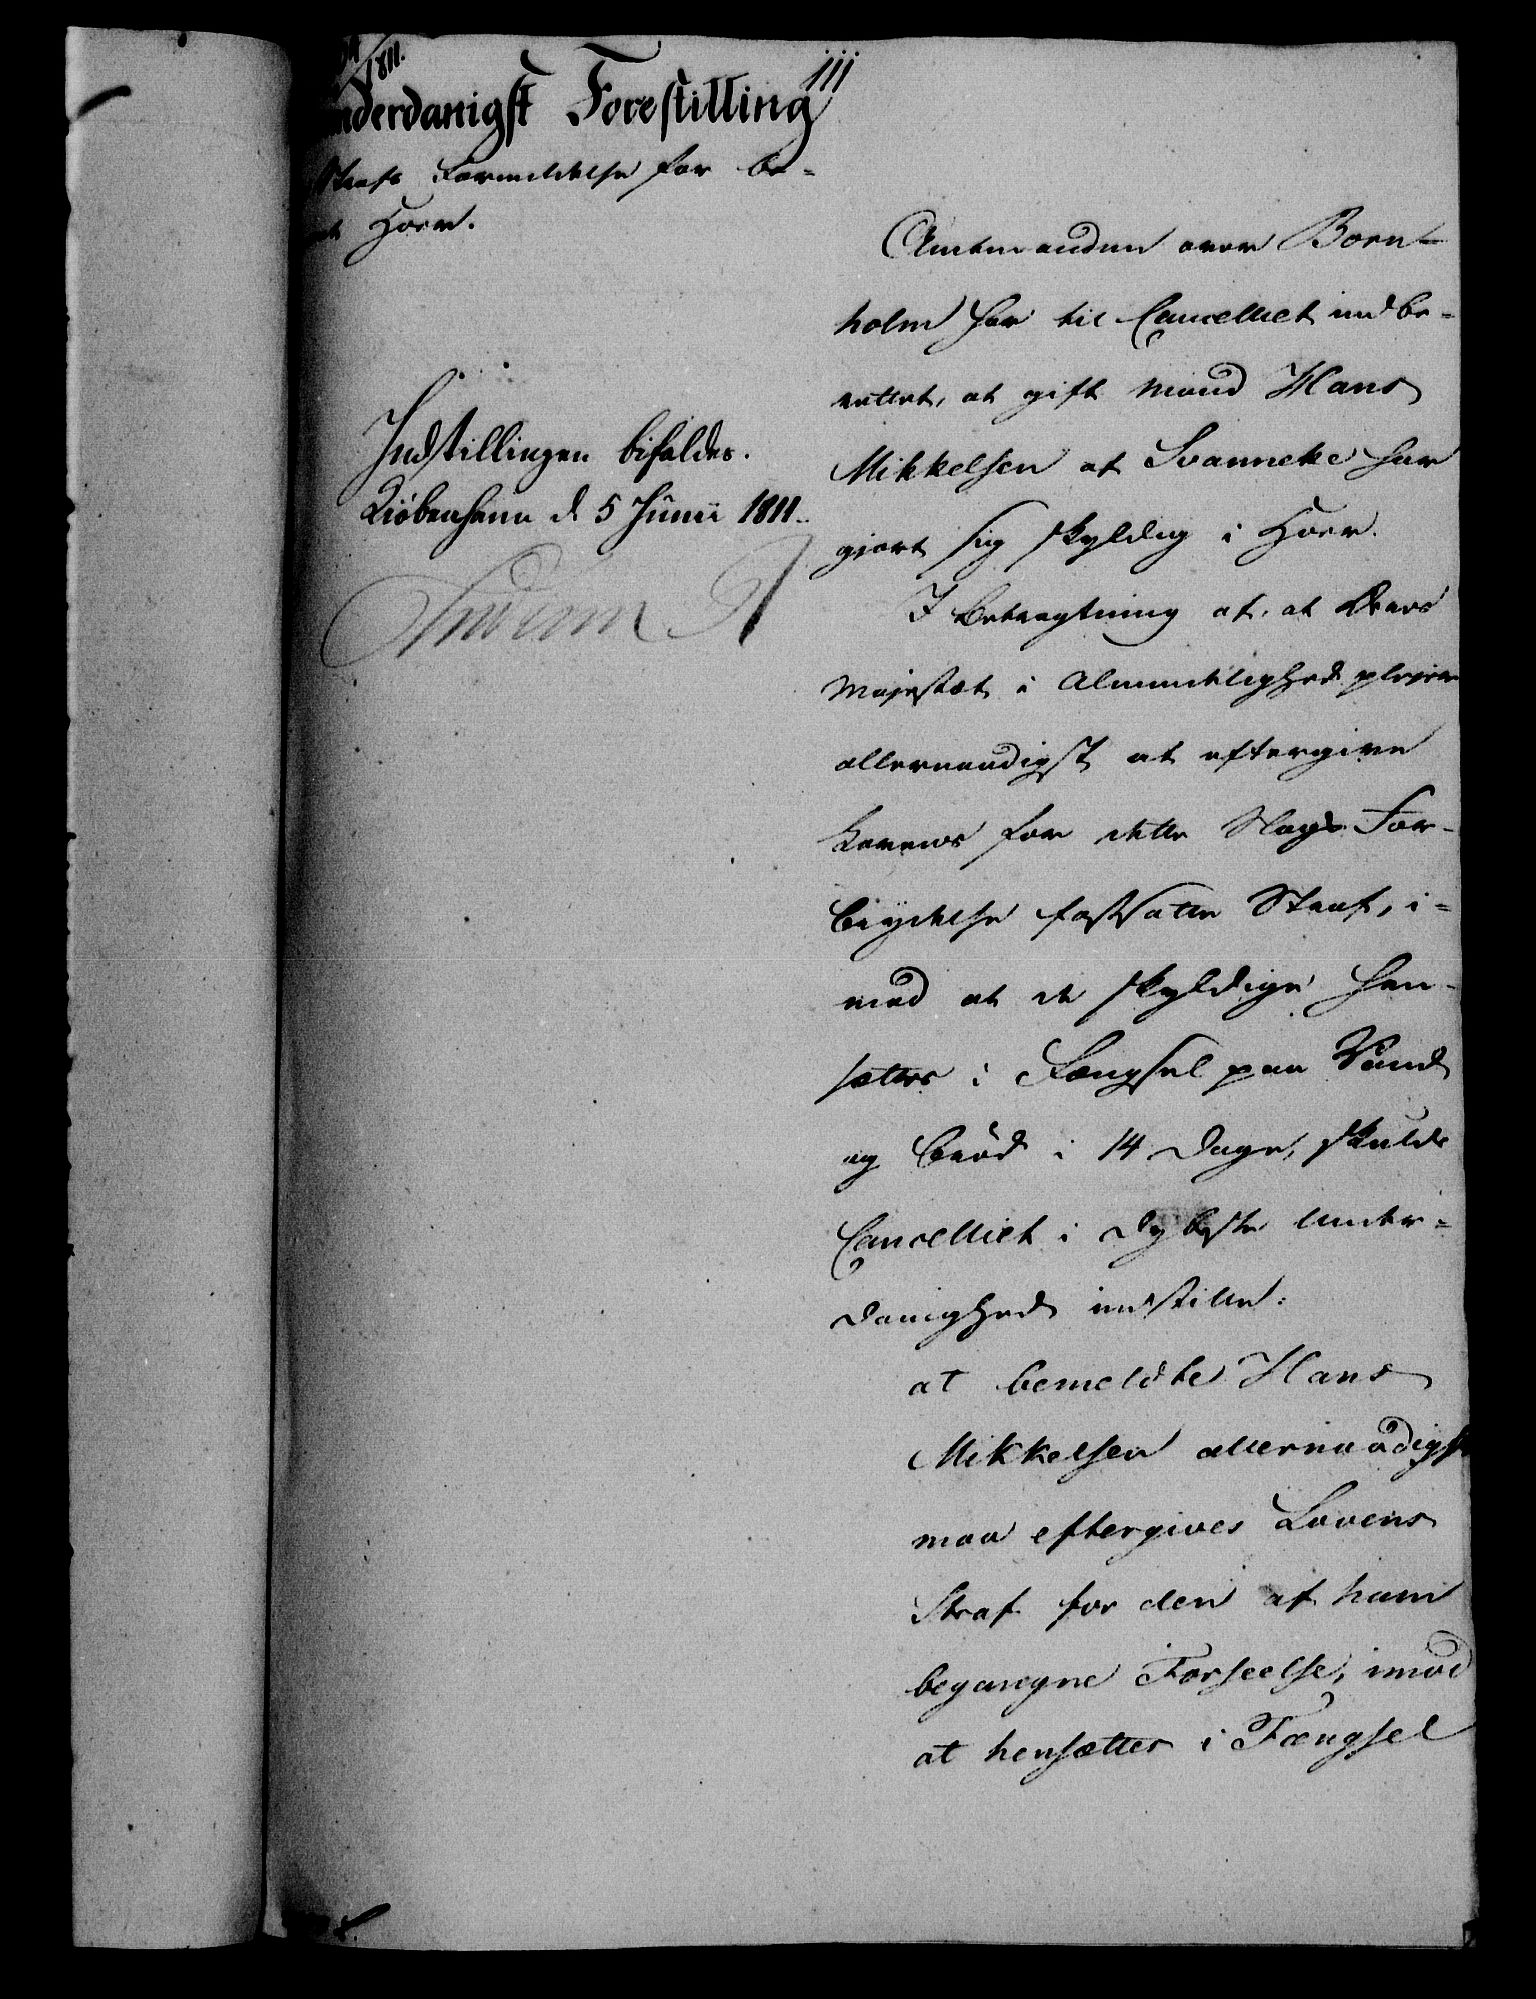 1811.
111
Underdanigst Forestilling
Straffs Formildelse for be-
Hoer.
Indstillingen bifaldes.
Kiöbenhavn d 5 Junii 1811.
Amtmanden over Born-
holm har til Cancelliet indbe-
rettet, at gift Mand Hans
Mikkelsen af Svanneke har
gjort sig skyldig i Hoer.
I Betragtning af, at Deres
Majestæt i Almindelighed plejer
allernaadigst at eftergive
Lovens for dette Slags For-
brydelse fastsatte Straf, i-
mod at de skyldige hen-
sættes i Fængsel paa Vand
og Bröd i 14 Dage, skulde
Cancelliet i dybeste Under-
danighed indstille:
at bemeldte Hans
Mikkelsen allernaadigst
maa eftergives Lovens
Straf for den af ham
begangne Forseelse, imod
at hensættes i Fængsel